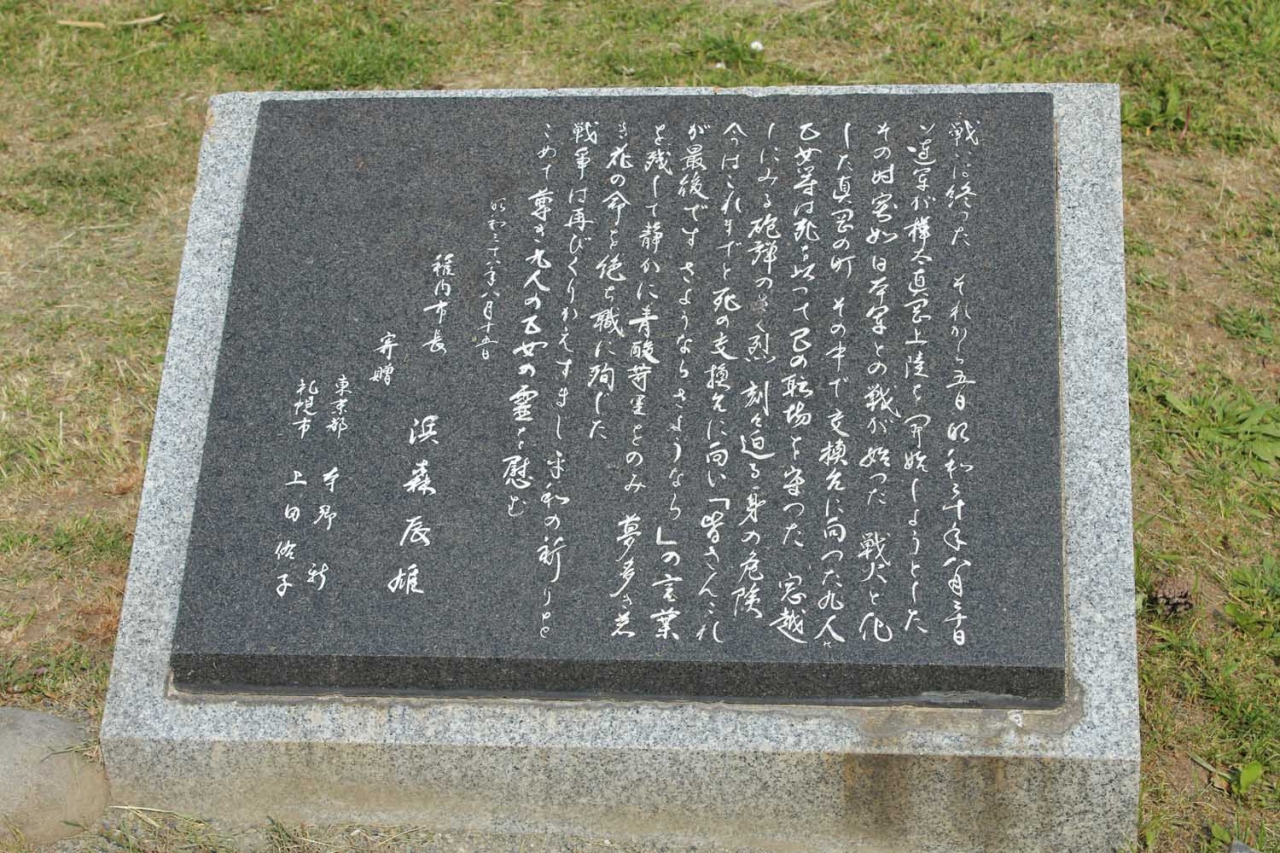 戦いは終った それから五日 昭和二十年八月二十日
ソ連軍が樺太真岡上陸を開始しようとした
その時突如日本軍との戦が始った 戦火と化
した真岡の町 その中で交換台に向った九人の
乙女等は死を以つて己の職場を守つた 窓越
しにみる砲弾のさく烈 刻々迫る身の危険
今はこれまでと死の交換台に向い「皆さんこれ
が最後です さようなら さようなら」の言葉
を残して静かに青酸苛里をのみ 夢多き若
き花の命を絶ち職に殉じた
戦争は再びくりかえすまじ平和の祈りを
こめて尊き九人の乙女の霊を慰む
昭和三十八年八月十五日
稚内市長 浜森辰雄
寄贈
東京都 本郷 新
札幌市 上田 佑子